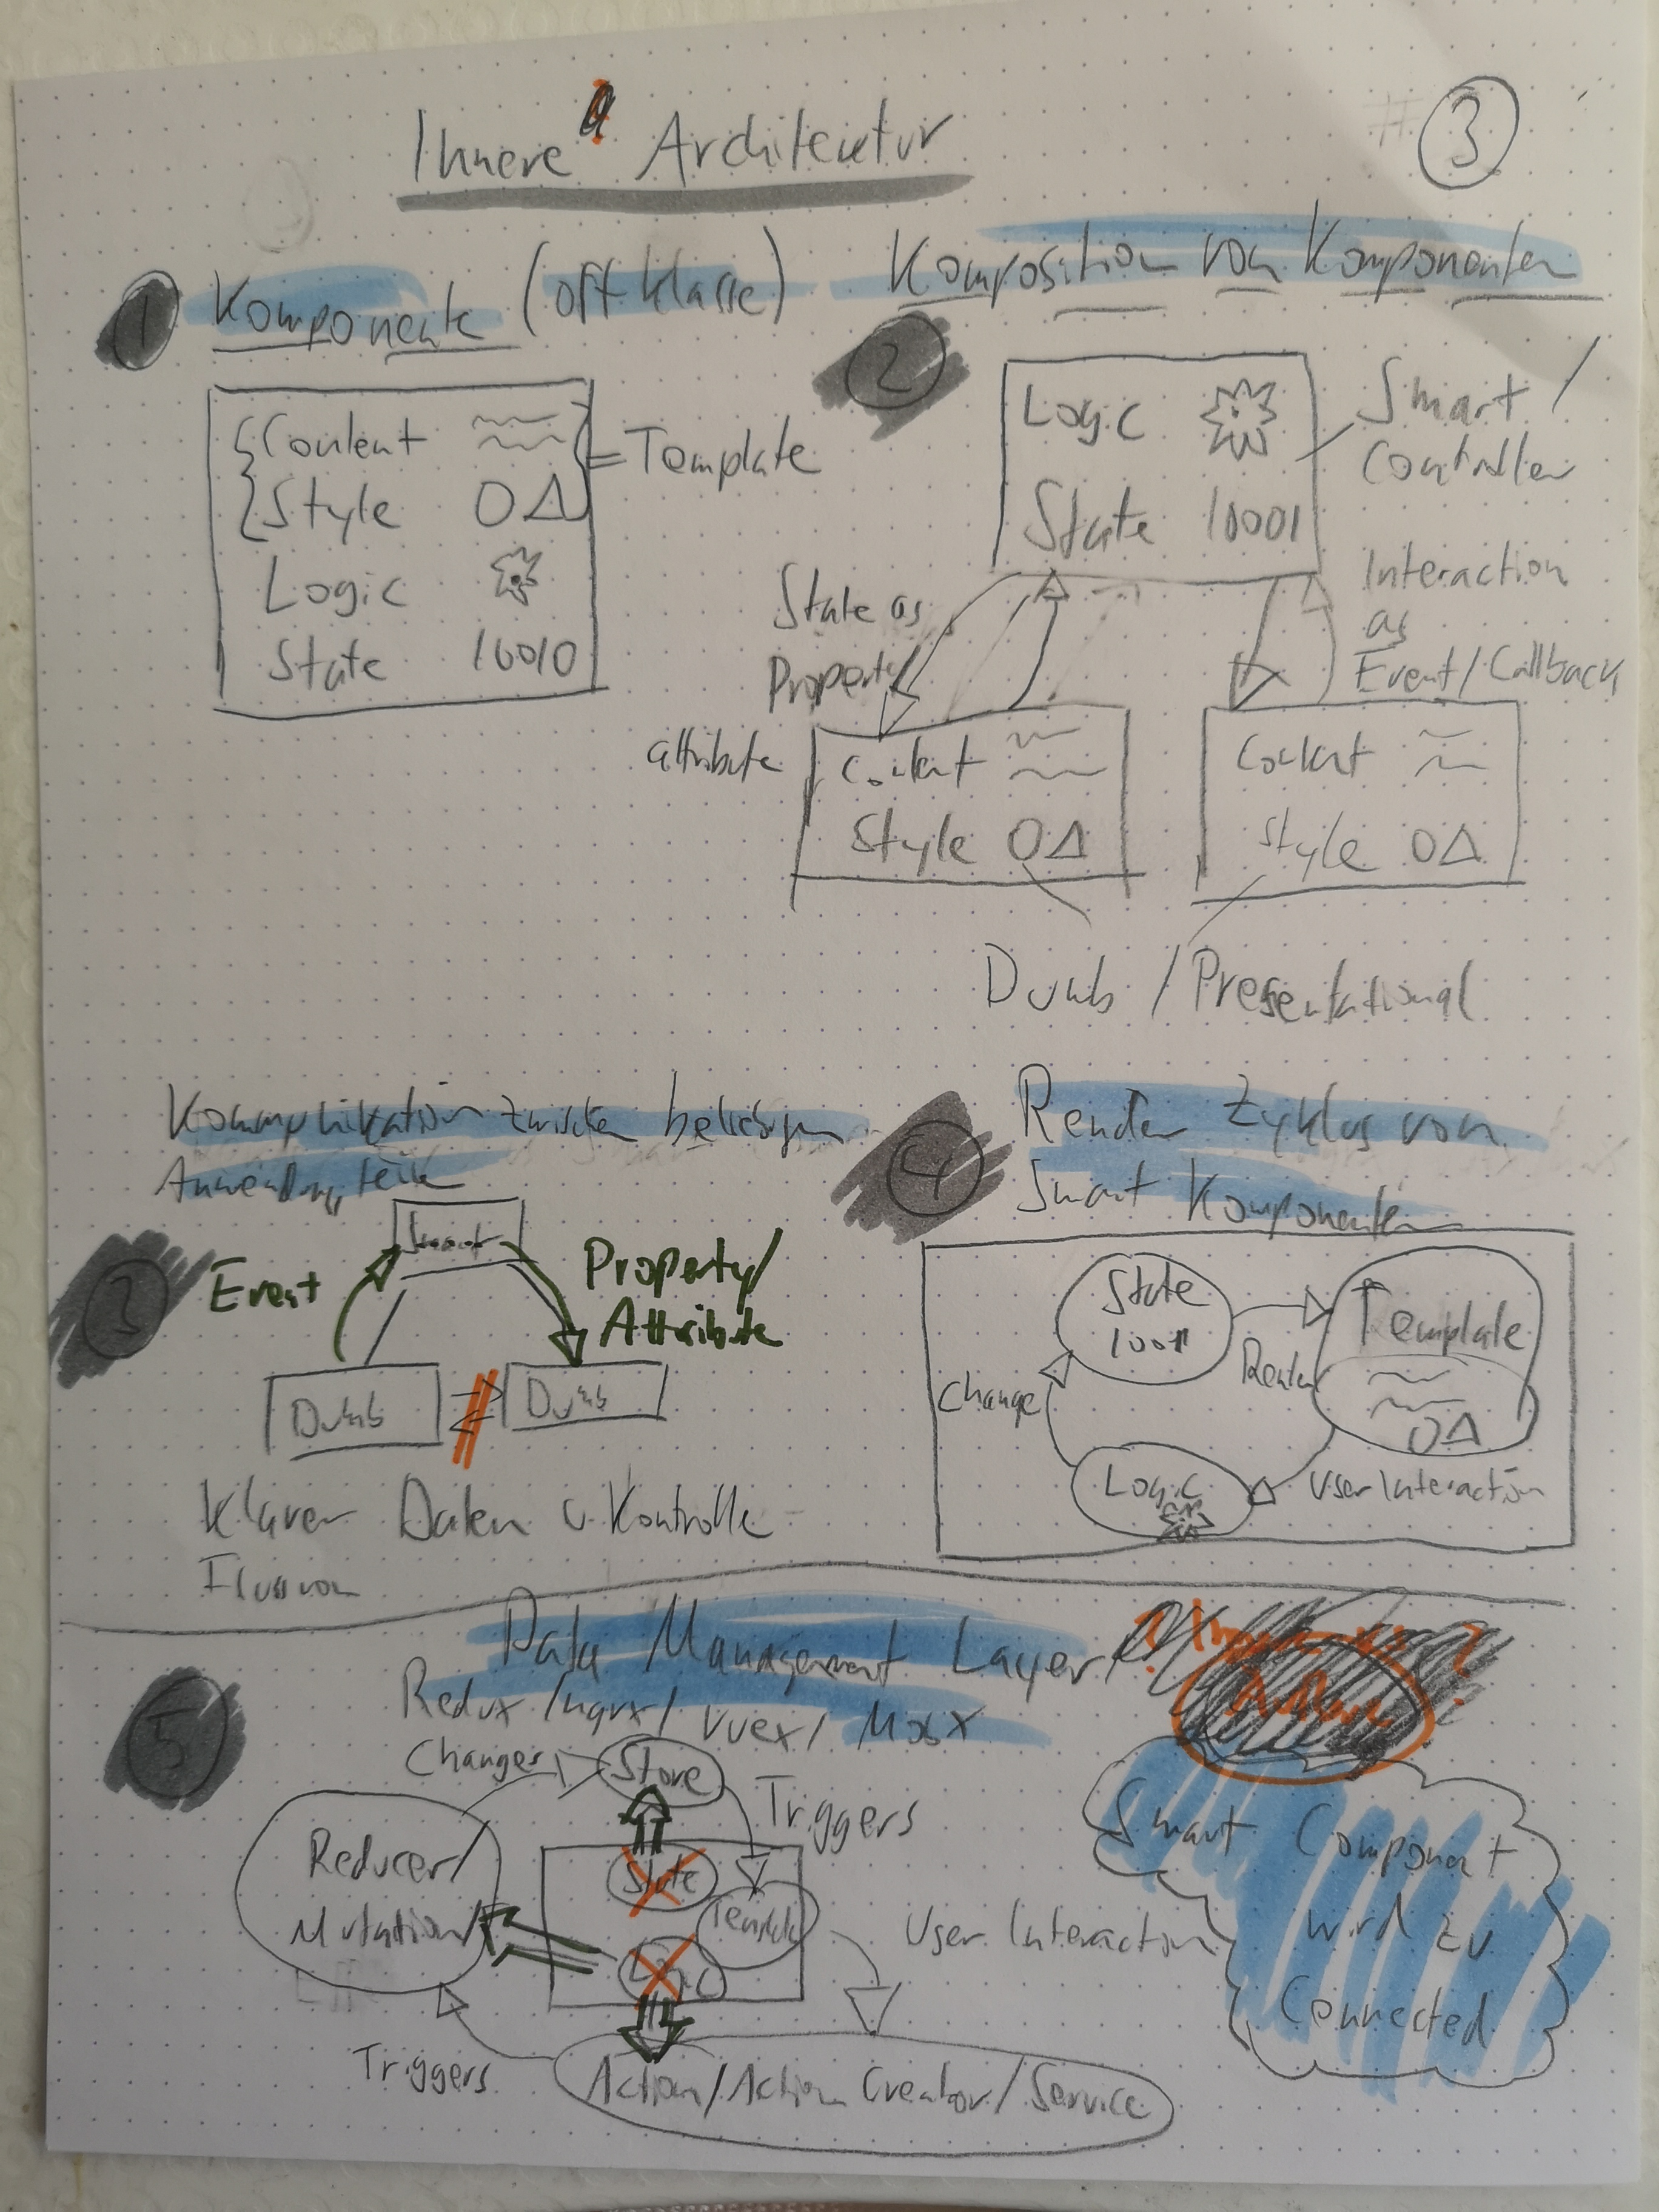 Innere Architektur
3
1
Komponente (oft Klasse)
Content
Style
= Template
Logic
State 10010
Komposition von Komponenten
2
Logic
State 10001
Smart /
Controller
State as
Property
attribute
Interaction
as
Event/Callback
Content
Style
Content
Style
Dumb / Presentational
Kommunikation zwischen beliebigen
Anwendungsteile
3
Event
Smart
Property/
Attribute
Dumb
Dumb
Klarer Daten u Kontrolle
4
Render Zyklus von
Smart Komponenten
State
Template
Render
Change
Logic
User Interaction
5
Data Management Layer
Redux /ngrx/ Vuex/ MobX
Changes
Store
Triggers
Reducer/
Mutation
State
Template
Logic
User Interaction
Triggers
Action/Action Creator/Service
Smart Component
wird zu
Connected